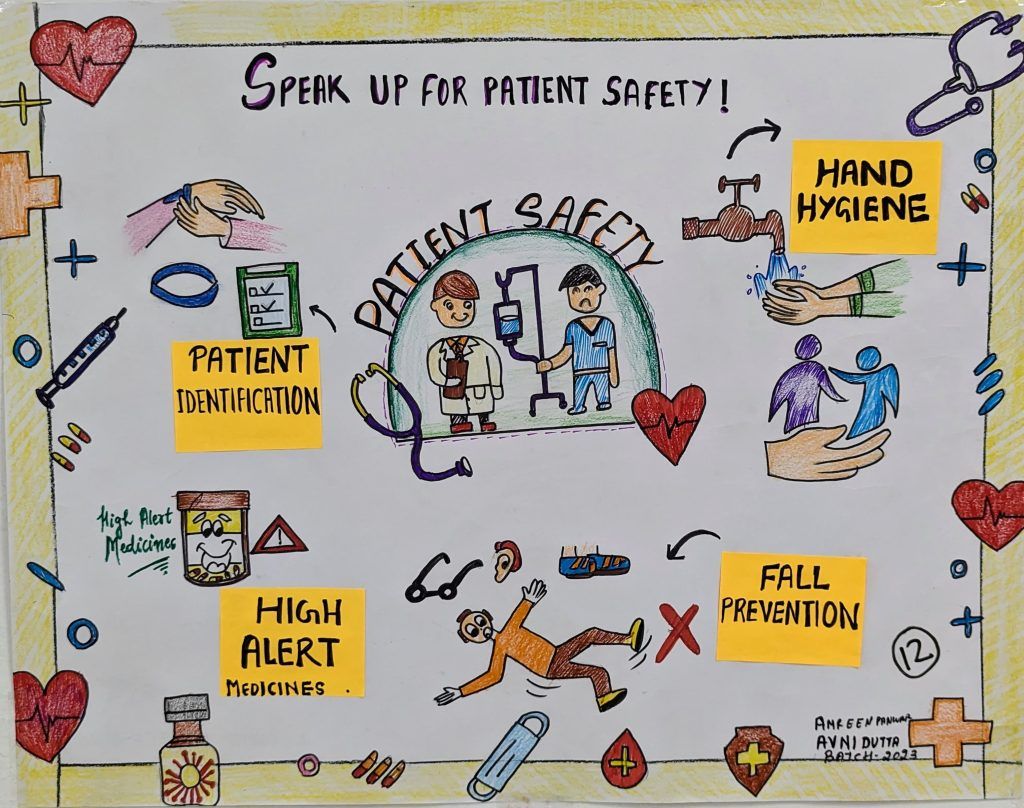 SPEAK UP FOR PATIENT SAFETY!
PATIENT SAFETY
HAND
HYGIENE
PATIENT
IDENTIFICATION
High Alert
Medicines
HIGH
ALERT
MEDICINES.
FALL
PREVENTION
12
AMREEN PANWAR
AVNI DUTTA
BATCH-2023